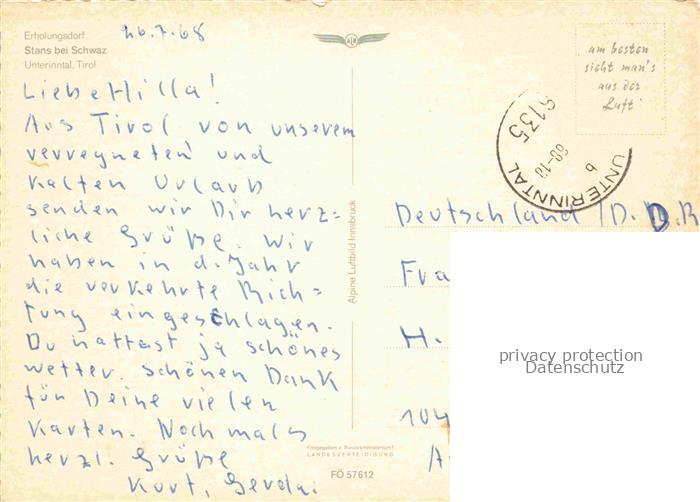 Erholungsdorf
Stans bei Schwaz
Unterinntal, Tirol
26.7.68
Liebe Hilla!
Aus Tirol von unserem
verregneten und
kalten Urlaub
senden wir Dir herz=
liche Grüße. Wir
haben in d. Jahr
die verkehrte Rich=
tung eingeschlagen.
Du hattest ja schönes
Wetter. Schönen Dank
für Deine vielen
Karten. Nochmals
herzl. Grüße
Kurt, Gerda.
Alpine Luftbild Innsbruck
Freigegeben v. Bundesministerium f.
LANDESVERTEIDIGUNG
FÖ 57612
am besten
sieht man's
aus der
Luft
6135
UNTERINNTAL
b
Deutschland /D.D.R
Fra
H.
104
privacy protection
Datenschutz